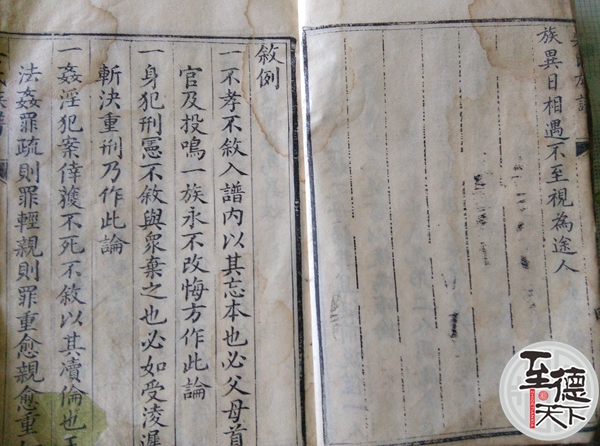 氏族譜
族異日相遇不至視為途人
敘例
一不孝不敘入譜內以其忘本也必父母首
官及投鳴一族永不改悔方作此論
一身犯刑憲不敘與衆棄之也必如受凌遲
斬決重刑乃作此論
一姦淫犯案倖獲不死不敘以其瀆倫也王
法姦罪疏則罪輕親則罪重愈親愈重
至德天下